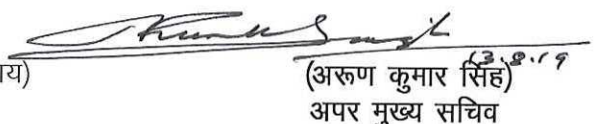 13.8.19
ाय) (अरूण कुमार सिंह)
अपर मुख्य सचिव